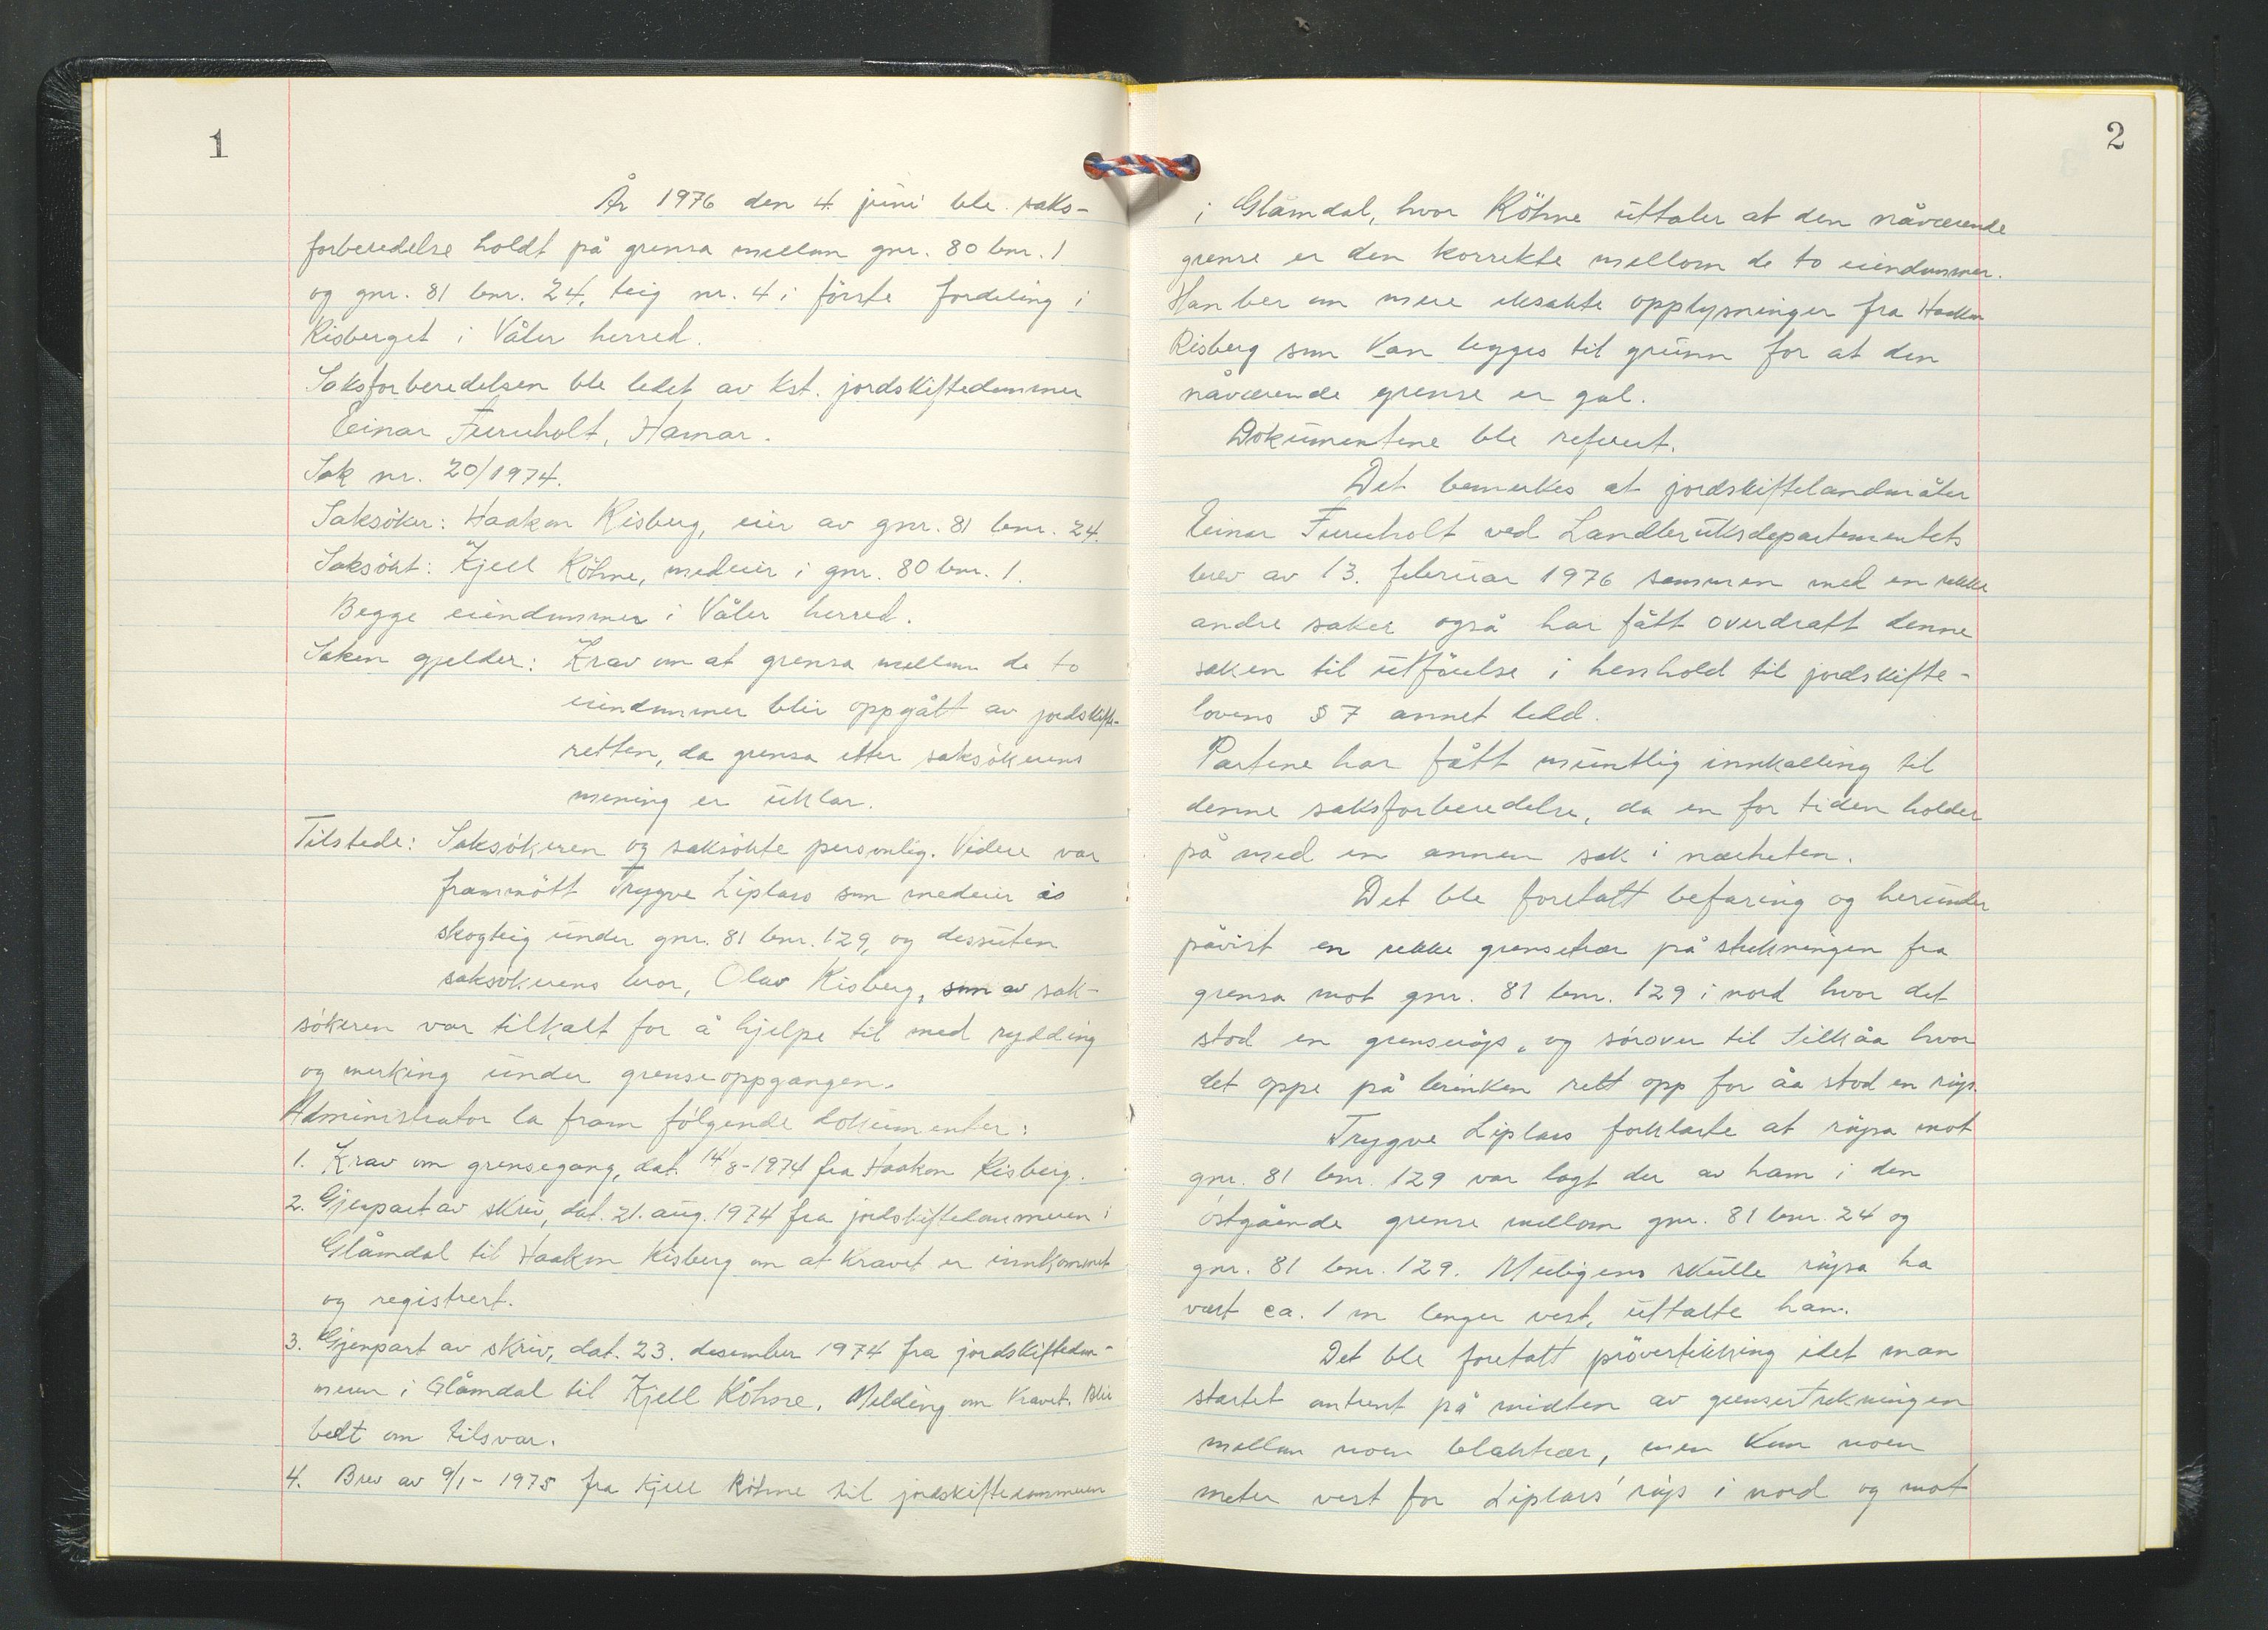 1
År 1976 den 4. juni ble saks-
forberedelse holdt på grensa mellom gnr. 80 bnr. 1
og gnr. 81 bnr. 24, teig nr. 4 i første fordeling i
Risberget i Våler herred.
Saksforberedelsen ble ledet av kst. jordskiftedommer
Einar Furuholt, Hamar.
Sak nr. 20/1974.
Saksöker: Haakon Risberg, eier av gnr. 81 bnr. 24.
Saksökt: Kjell Köhne, medeier i gnr. 80 bnr. 1.
Begge eiendommer i Våler herred.
Saken gjelder: Krav om at grensa mellom de to
eiendommer blir oppgått av jordskifte-
retten, da grensa etter saksökerens
mening er uklar.
Tilstede: Saksökeren og saksökte personlig. Videre var
frammött Trygve Liplass som medeier
skogteig under gnr. 81 bnr. 129, og dessuten
saksökerens bror, Olav Risberg, som av sak-
sökeren var tilkalt for å hjelpe til med rydding
og merking under grenseoppgangen.
Administrator la fram fölgende dokumenter:
1. Krav om grensegang, dat. 14/8-1974 fra Haakon Risberg.
2. Gjenpart av skriv, dat. 21. aug. 1974 fra jordskiftedommeren i
Glåmdal til Haakon Risberg om at kravet er innkommet
og registrert.
3. Gjenpart av skriv, dat. 23. desember 1974 fra jordskiftedom-
meren i Glåmdal til Kjell Köhne. Melding om kravet. Blir
bedt om tilsvar.
4. Brev av 9/1-1975 fra Kjell Köhne til jordskiftedommeren
2
i Glåmdal, hvor Köhne uttaler at den nåværende
grense er den korrekte mellom de to eiendommer.
Han ber om mere eksakte opplysninger fra Haakon
Risberg som kan legges til grunn for at den
nåværende grense er gal.
Dokumentene ble referert.
Det bemerkes at jordskiftelandmåler
Einar Furuholt ved Landbruksdepartementets
brev av 13. februar 1976 sammen med en rekke
andre saker også har fått overdratt denne
saken til utförelse i henhold til jordskifte-
lovens § 7 annet ledd.
Partene har fått muntlig innkalling til
denne saksforberedelse, da en for tiden holder
på med en annen sak i nærheten.
Det ble foretatt befaring og herunder
påvist en rekke grensetrær på strekningen fra
grensa mot gnr. 81 bnr. 129 i nord hvor det
stod en grenseröys, og sörover til Silkåa hvor
det oppe på brinken rett opp for åa stod en röys.
Trygve Liplass forklarte at röysa mot
gnr. 81 bnr. 129 var lagt der av ham i den
östgående grense mellom gnr. 81 bnr. 24 og
gnr. 81 bnr. 129. Muligens skulle röysa ha
vært ca. 1 m lenger vest, uttalte han.
Det ble foretatt prövestikking idet man
startet omtrent på midten av grensestrekningen
mellom noen blaktrær, men kun noen
meter vest for Liplass' röys i nord og mot